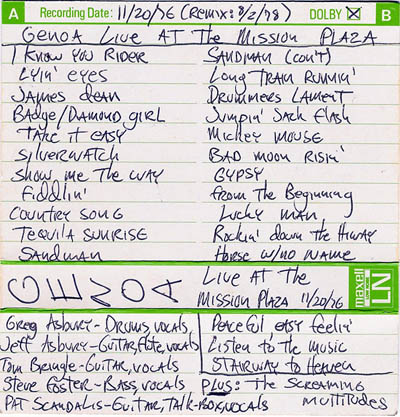 A Recording Date: 11/20/76 (Remix: 8/2/78) DOLBY B
Genoa Live At The Mission Plaza
I Know You Rider
Lyin' Eyes
James Dean
Badge/Diamond Girl
Take it Easy
Silverwatch
Show Me The Way
Fiddlin'
Country Song
Tequila Sunrise
Sandman
Sandman (con't)
Long Train Runnin'
Drummers Lament
Jumpin' Jack Flash
Mickey Mouse
Bad Moon Risin'
Gypsy
From the Beginning
Lucky Man
Rockin' down the Hiway
Horse w/no Name
GENOA
Live At The
Mission Plaza 11/20/76
maxell LN
Greg Asbury - Drums, vocals
Jeff Asbury - Guitar, flute, vocals
Tom Bringle - Guitar, vocals
Steve Foster - Bass, vocals
Pat Scandalis - Guitar, Talk-Box, vocals
Peaceful easy feelin'
Listen to the Music
Stairway to Heaven
Plus: The Screaming
Multitudes